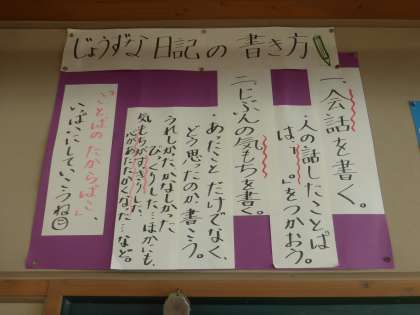 じょうずな日記の書き方
一、会話を書く。
・人の話したことばは「 」をつかおう。
二、じぶんの気もちを書く。
・あったことだけでなく、
どう思ったのか書こう。
うれしかった かなしかった
びっくりした…ほかにも、
気もちがすっきりした
心があたたかくなった…など。
「ことばのたからばこ」、
いっぱいにしていこうね